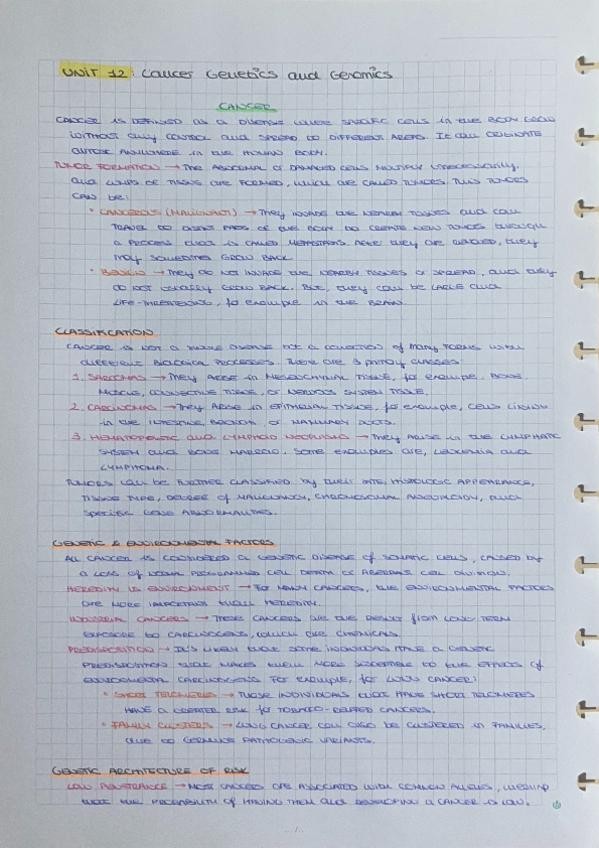 UNIT 12: Cancer Genetics and Genomics
CANCER
CANCER IS DEFINED AS A DISEASE WHERE SPECIFIC CELLS IN THE BODY GROW
WITHOUT ANY CONTROL AND SPREAD TO DIFFERENT AREAS. IT CAN ORIGINATE
ANYWHERE IN THE HUMAN BODY.
TUMOR FORMATION → THE ABNORMAL OR DAMAGED CELLS MULTIPLY UNNECESSARILY,
AND LUMPS OF TISSUE ARE FORMED, WHICH ARE CALLED TUMORS. THIS TUMORS
CAN BE:
• CANCEROUS (MALIGNANT) → THEY INVADE THE NEARBY TISSUES AND CAN
TRAVEL TO DISTANT PARTS OF THE BODY TO CREATE NEW TUMORS THROUGH
A PROCESS THAT IS CALLED METASTASIS. AFTER THEY ARE REMOVED, THEY
MAY SOMETIMES GROW BACK.
• BENIGN → THEY DO NOT INVADE THE NEARBY TISSUES OR SPREAD, AND THEY
DO NOT USUALLY GROW BACK. BUT, THEY CAN BE LARGE AND
LIFE-THREATENING, FOR EXAMPLE IN THE BRAIN.
CLASSIFICATION
CANCER IS NOT A SINGLE DISEASE BUT A COLLECTION OF MANY FORMS WITH
DIFFERENT BIOLOGICAL PROCESSES. THERE ARE 3 PRIMARY CLASSES:
1. SARCOMAS → THEY ARISE IN MESENCHYMAL TISSUE, FOR EXAMPLE, BONE,
MUSCLE, CONNECTIVE TISSUE, OR NERVOUS SYSTEM TISSUE.
2. CARCINOMAS → THEY ARISE IN EPITHELIAL TISSUE, FOR EXAMPLE, CELLS LINING
IN THE INTESTINE, BRONCHI, OR MAMMARY DUCTS.
3. HEMATOPOIETIC AND LYMPHOID NEOPLASMS → THEY ARISE IN THE LYMPHATIC
SYSTEM AND BONE MARROW. SOME EXAMPLES ARE, LEUKEMIA AND
LYMPHOMA.
TUMORS CAN BE FURTHER CLASSIFIED BY THEIR SITE, HISTOLOGIC APPEARANCE,
TISSUE TYPE, DEGREE OF MALIGNANCY, CHROMOSOMAL ANEUPLOIDY, AND
SPECIFIC GENE ABNORMALITIES.
GENETIC & ENVIRONMENTAL FACTORS
ALL CANCER IS CONSIDERED A GENETIC DISEASE OF SOMATIC CELLS, CAUSED BY
A LOSS OF NORMAL PROGRAMMED CELL DEATH OR ABERRANT CELL DIVISION.
HEREDITY VS ENVIRONMENT → FOR MANY CANCERS, THE ENVIRONMENTAL FACTORS
ARE MORE IMPORTANT THAN HEREDITY.
INDUSTRIAL CANCERS → THESE CANCERS ARE THE RESULT FROM LONG TERM
EXPOSURE TO CARCINOGENS, WHICH ARE CHEMICALS.
PREDISPOSITION → IT'S LIKELY THAT SOME INDIVIDUALS HAVE A GENETIC
PREDISPOSITION THAT MAKES THEM MORE SUSCEPTIBLE TO THE EFFECTS OF
ENVIRONMENTAL CARCINOGENS FOR EXAMPLE, FOR LUNG CANCER:
• SHORT TELOMERES → THOSE INDIVIDUALS THAT HAVE SHORT TELOMERES
HAVE A GREATER RISK FOR TOBACCO-RELATED CANCERS.
• FAMILY CLUSTERS → LUNG CANCER CAN ALSO BE CLUSTERED IN FAMILIES,
DUE TO GERMLINE PATHOGENIC VARIANTS.
GENETIC ARCHITECTURE OF RISK
LOW PENETRANCE → MOST CANCERS ARE ASSOCIATED WITH COMMON ALLELES, MEANING
THAT THE PROBABILITY OF HAVING THEM AND DEVELOPING A CANCER IS LOW.